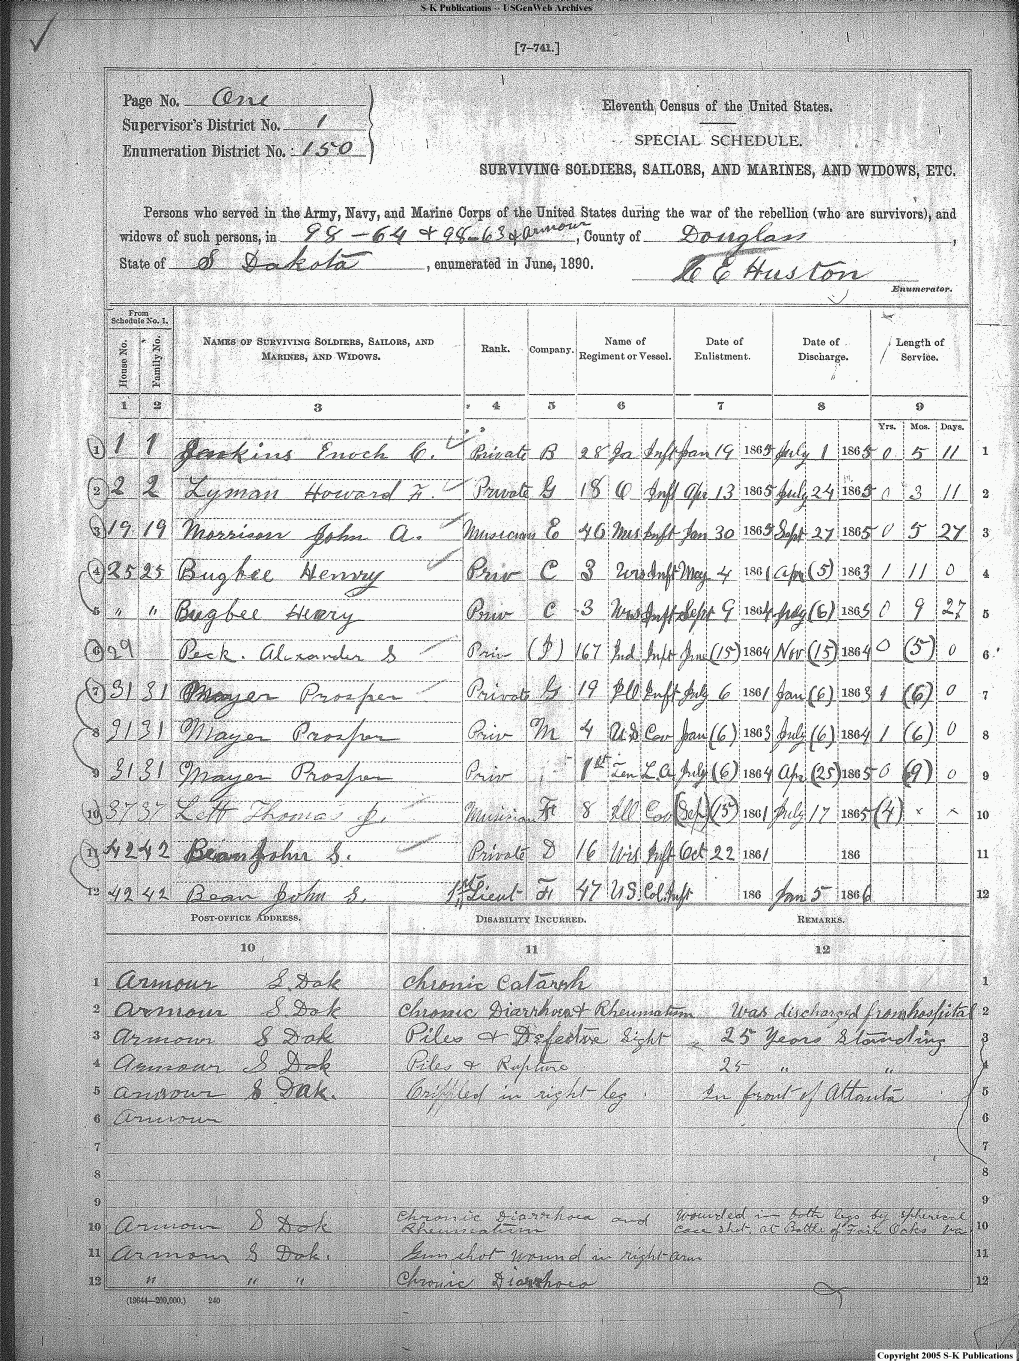 S-K Publications -- USGenWeb Archives
[7-741.]
Page No. One
Supervisor's District No. 1
Enumeration District No. 150
Eleventh Census of the United States.
SPECIAL SCHEDULE.
SURVIVING SOLDIERS, SAILORS, AND MARINES, AND WIDOWS, ETC.
Persons who served in the Army, Navy, and Marine Corps of the United States during the war of the rebellion (who are survivors), and
widows of such persons, in 98-64 & 98-63 & Armour, County of Douglas,
State of S Dakota, enumerated in June, 1890. C E Huston
Enumerator.
From Schedule No. 1.
House No. Family No. NAMES OF SURVIVING SOLDIERS, SAILORS, AND MARINES, AND WIDOWS. Rank. Company. Name of Regiment or Vessel. Date of Enlistment. Date of Discharge. Length of Service.
1 2 3 4 5 6 7 8 9
Yrs. Mos. Days.
1 1 1 Jenkins Enoch C. Private B 28 Ia Inft Jan 19 1865 July 1 1865 0 5 11 1
2 2 2 Lyman Howard F. Private G 18 O Inft Apr 13 1865 July 24 1865 0 3 11 2
3 19 19 Morrison John A. Musician E 46 Wis Inft Jan 30 1865 Sept 27 1865 0 5 27 3
4 25 25 Bugbee Henry Priv C 3 Wis Inft May 4 1861 Apr (5) 1863 1 11 0 4
5 " " Bugbee Henry Priv C 3 Wis Inft Sept 9 1864 July (6) 1865 0 9 27 5
6 29 Peck. Alexander S Priv (I) 167 Ind Inft June (15) 1864 Nov (15) 1864 0 (5) 0 6
7 31 31 Mayer Prosper Private G 19 Ill Inft July 6 1861 Jan (6) 1863 1 (6) 0 7
8 31 31 Mayer Prosper Priv M 4 U.S Cav Jan (6) 1863 July (6) 1864 1 (6) 0 8
9 31 31 Mayer Prosper Priv 1st Ten L.A. July (6) 1864 Apr (25) 1865 0 (9) 0 9
10 37 37 Lett Thomas J. Musician F 8 Ill Cav (Sep) (15) 1861 July 17 1865 (4) × × 10
11 42 42 Bean John S. Private D 16 Wis Inft Oct 22 1861 186 11
12 42 42 Bean John S. 1st Lieut F 47 U.S. Col. Inft 186 Jan 5 1866 12
POST-OFFICE ADDRESS. DISABILITY INCURRED. REMARKS.
10 11 12
1 Armour S. Dak Chronic Catarrh 1
2 Armour S Dak Chronic Diarrhoea & Rheumatism Was discharged from hospital 2
3 Armour S Dak Piles & Defective Sight 25 Years Standing 3
4 Armour S Dak Piles & Rupture 25 " " 4
5 Armour S Dak. Crippled in right leg. In front of Atlanta 5
6 Armour 6
7 7
8 8
9 9
10 Armour S Dak Chronic Diarrhoea and Rheumatism Wounded in both legs by spherical case shot, at Battle of Fair Oaks Va. 10
11 Armour S Dak. Gun shot wound in right arm 11
12 " " " Chronic Diarrhoea 12
(19644-200,000.) 240
Copyright 2005 S-K Publications